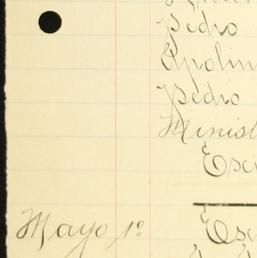 Pedro
Apolin
Pedro
Minist
Esc
Mayo 1º Esc